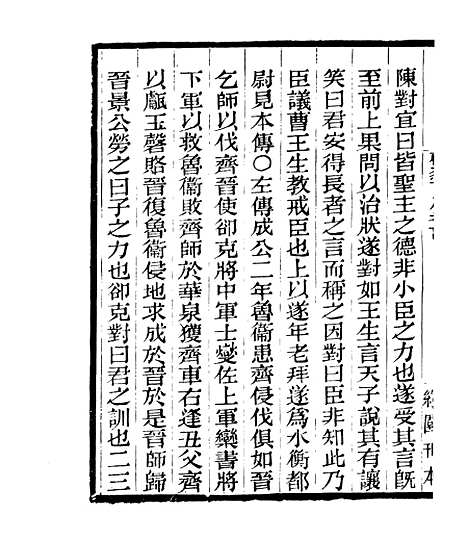 陳對宜曰皆聖主之德非小臣之力也遂受其言旣
至前上果問以治狀遂對如王生言天子說其有讓
笑曰君安得長者之言而稱之因對曰臣非知此乃
臣議曹王生教戒臣也上以遂年老拜遂爲水衡都
尉見本傳○左傳成公二年魯衞患齊侵伐俱如晉
乞師以伐齊晉使卻克將中軍士燮佐上軍欒書將
下軍以救魯衞敗齊師於華泉獲齊車右逢丑父齊
以甗玉磬賂晉復魯衞侵地求成於晉於是晉師歸
晉景公勞之曰子之力也卻克對曰君之訓也二三
刊本